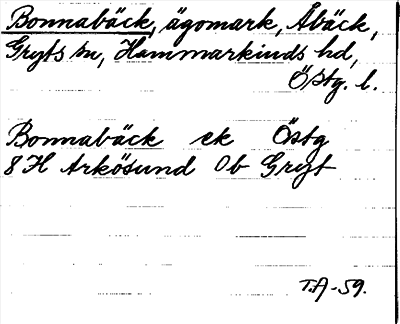 Bonnabäck, ägomark, Åbäck,
Gryts sn, Hammarkinds hd,
Östg. l.
Bonnabäck ek Östg
8H Arkösund 0b Gryt
T.A-59.